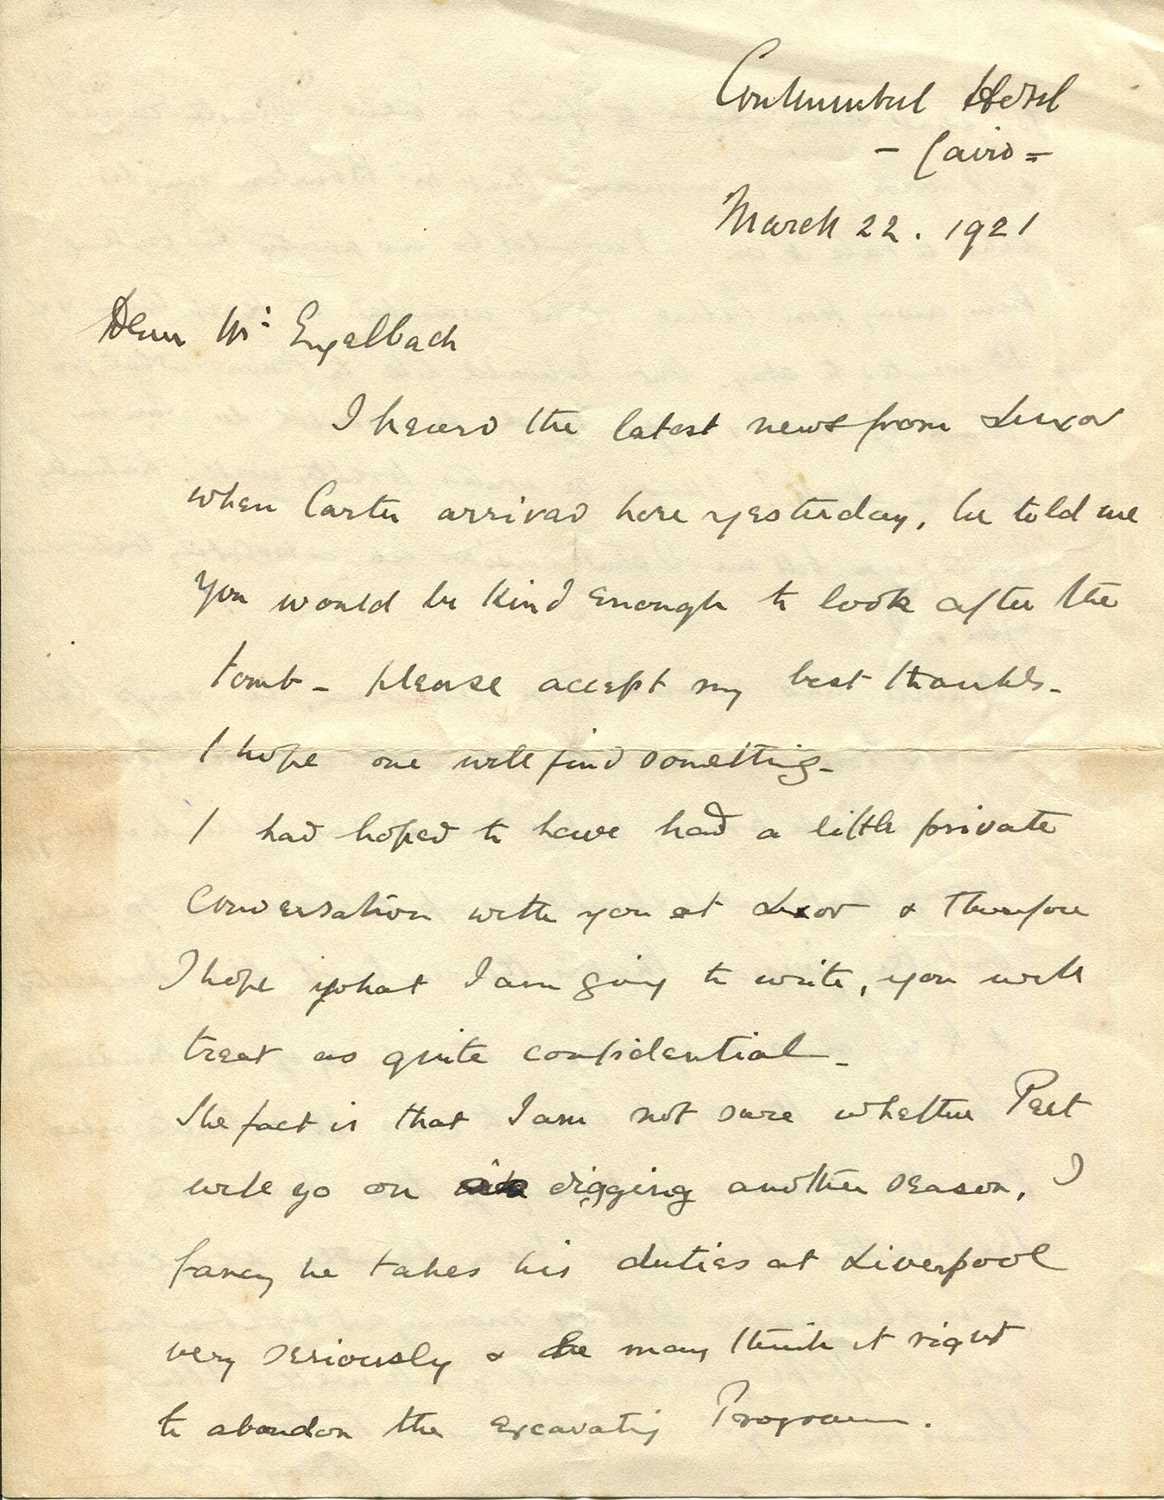 Continental Hotel
- Cairo =
March 22. 1921
Dear Mr. Engelbach
I heard the latest news from Luxor
when Carter arrived here yesterday, he told me
you would be kind enough to look after the
tomb - please accept my best thanks -
I hope one will find something -
I had hoped to have had a little private
conversation with you at Luxor & therefore
I hope what I am going to write, you will
treat as quite confidential -
The fact is that I am not sure whether Peet
will go on digging another season, I
fancy he takes his duties at Liverpool
very seriously & he may think it right
to abandon the excavating Program.